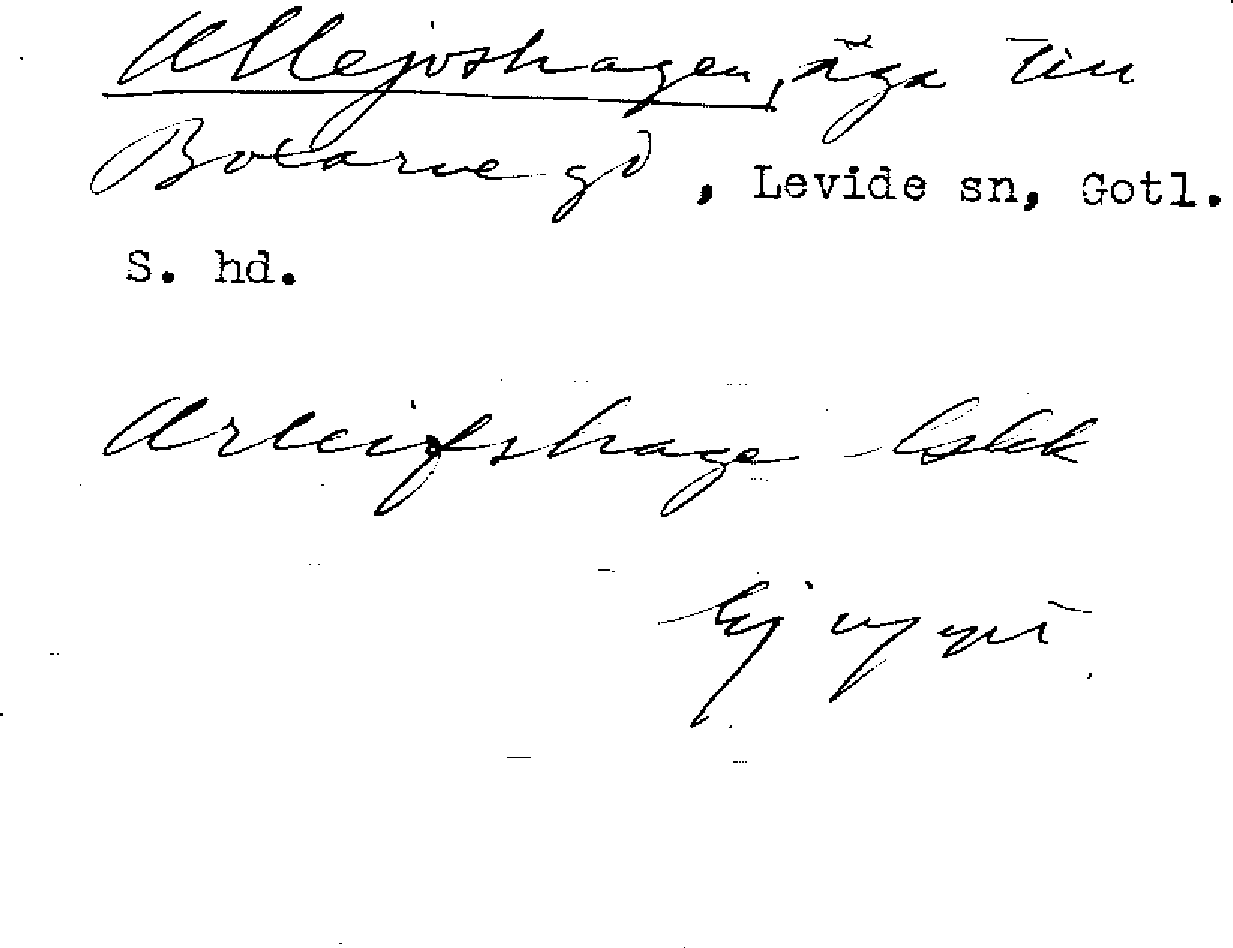 Allejvshagen, äga till
Botarve gd, Levide sn, Gotl.
S. hd.
Arleifshage Cskk
Ej uppt.